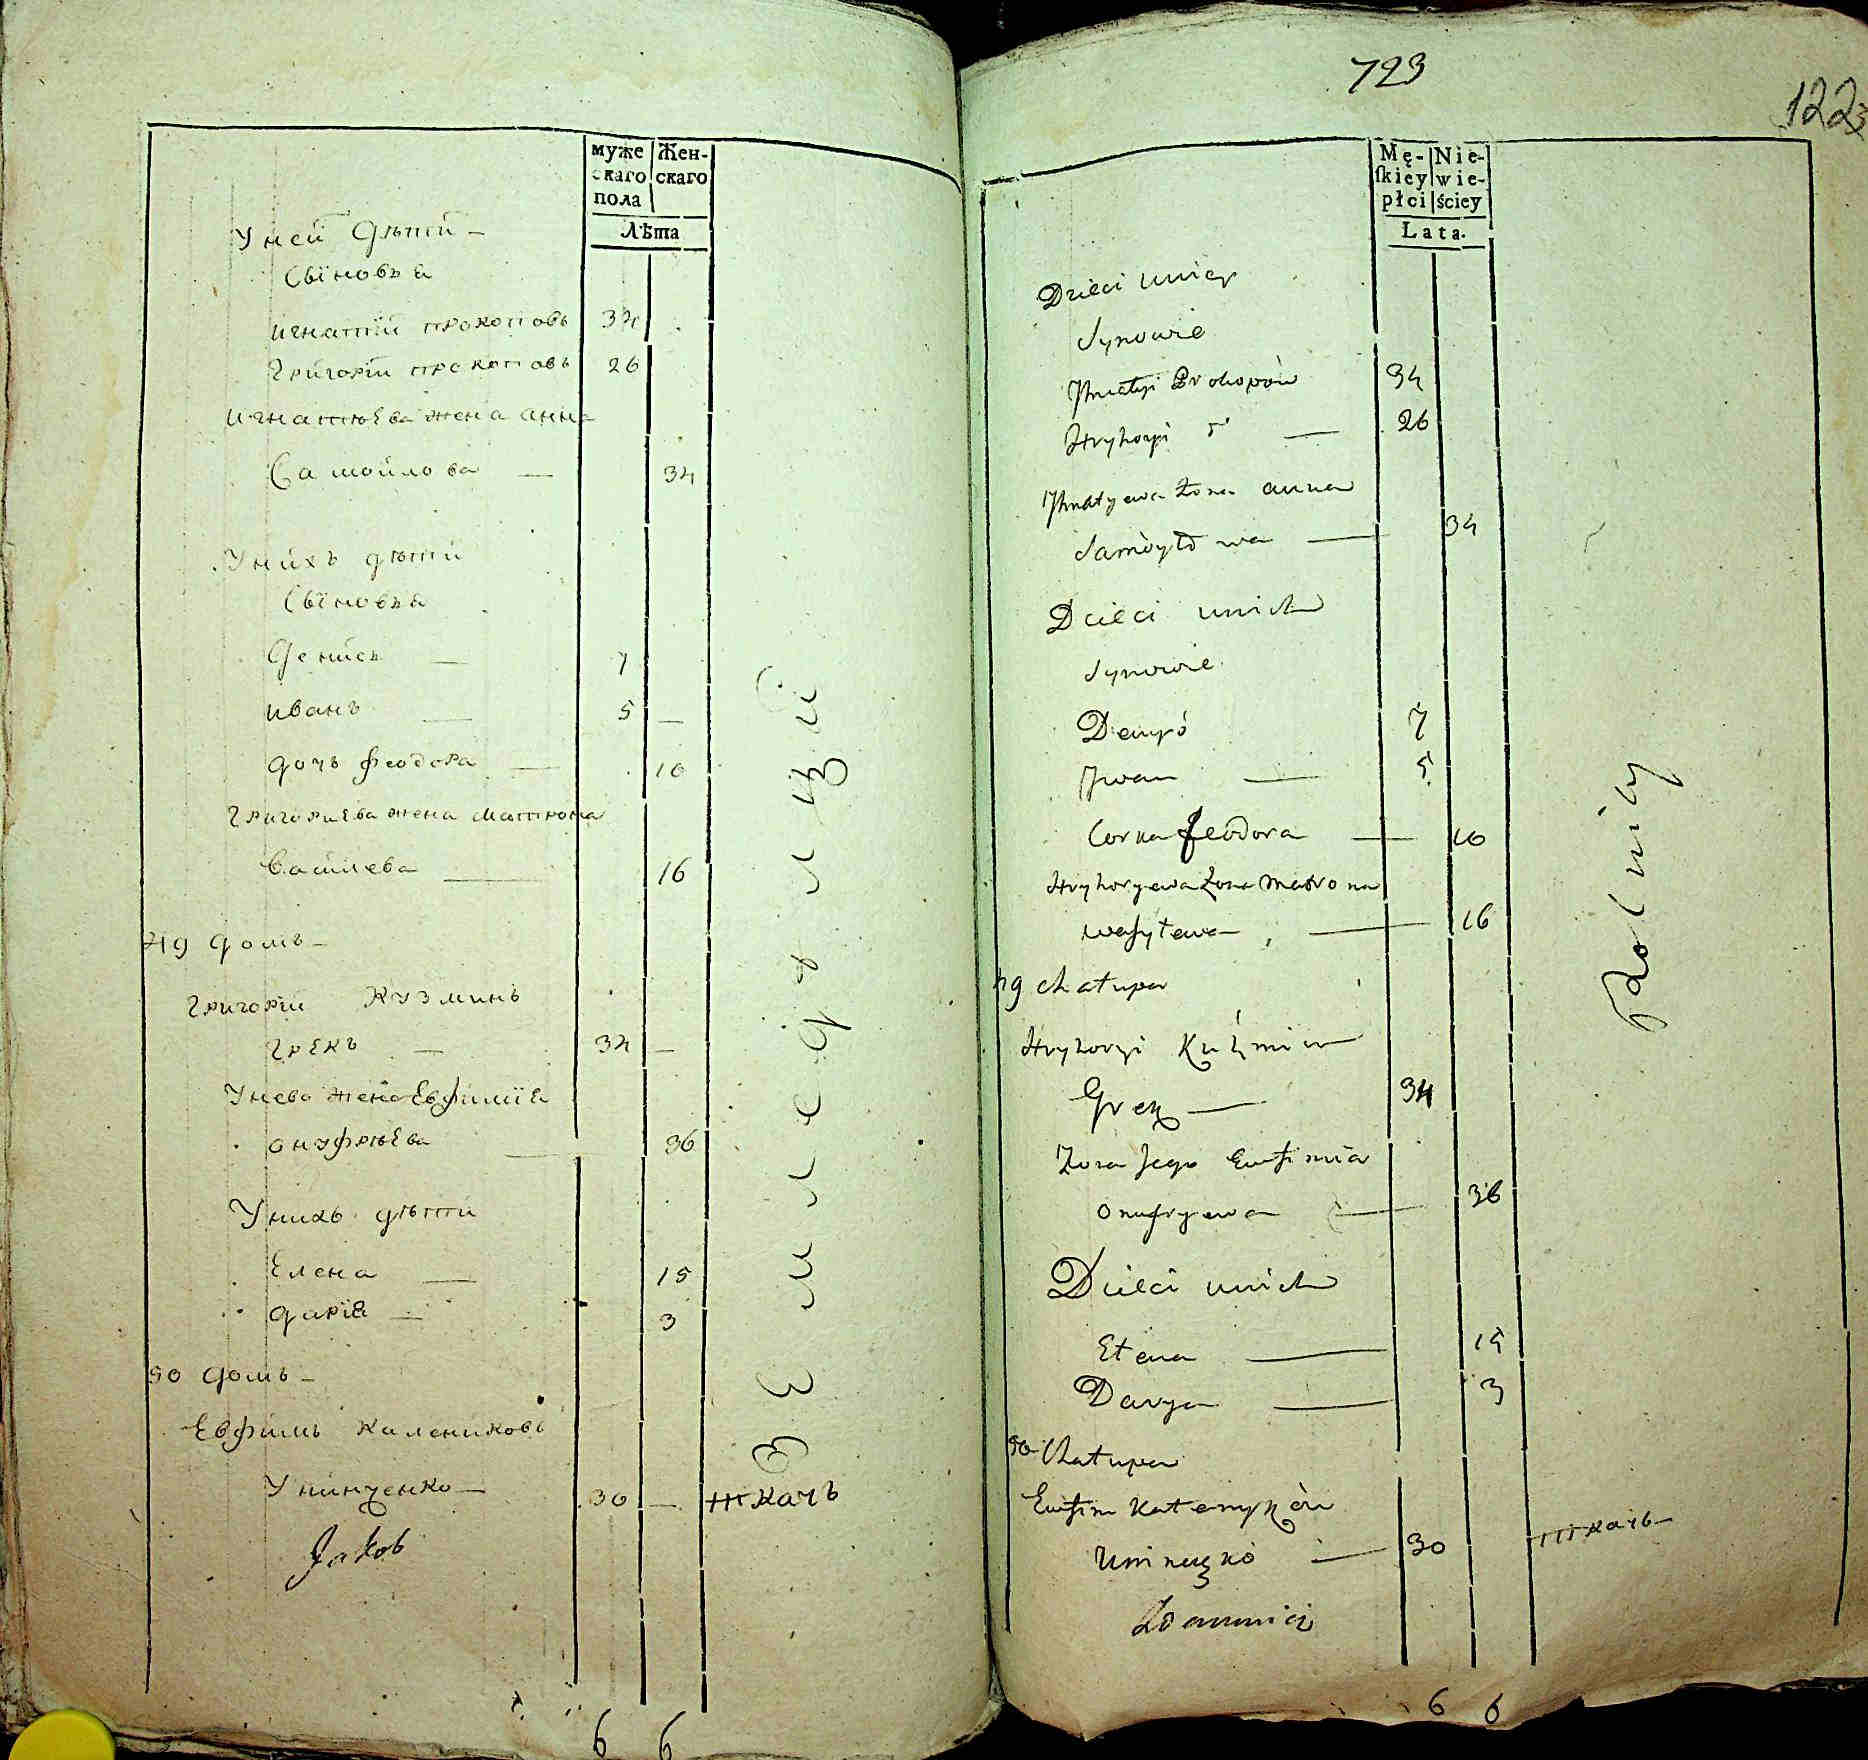 муже
скаго
пола
Жен-
скаго
Лѣта
Уней дѣтей
Сыновья
Игнатий прокоповъ 34
Григорий прокоповъ 26
Игнатьева жена анна
Самойлова 34
Унихъ дѣтей
Сыновья
Денисъ 7
иванъ 5
дочь феодора 10
Григориева жена Матрона
Василева 16
49 домъ
Григорий Кузминъ
Грекъ 34
Унево жена Евфимия
онуфрьева 36
Унихъ дѣти
Елена 15
дария 3
50 домъ
Евфимъ Калениковъ
Униченко 30 ткачь
Jakob
6 6
Земледѣлцы
723
122
Mę-
skiey
płci
Nie-
wie-
ściey
Lata.
Dzieci uniey
Synowie
Jhnatyi Prokopów 34
Hryhoryi 26
Jhnatyewa żona anna
Samoyłowa 34
Dzieci unich
Synowie
Denys 7
Jwan 5
Corka feodora 10
Hryhoryewa żona Matrona
Wasylewa 16
49 chałupa
Hryhoryi Kuźmin
Grek 34
Żona Jego Eufimia
onufryewa 36
Dzieci unich
Elena 15
Darya 3
50 Chałupa
Eufim Kalenyków
30 ткачь
6 6
Rolnicy